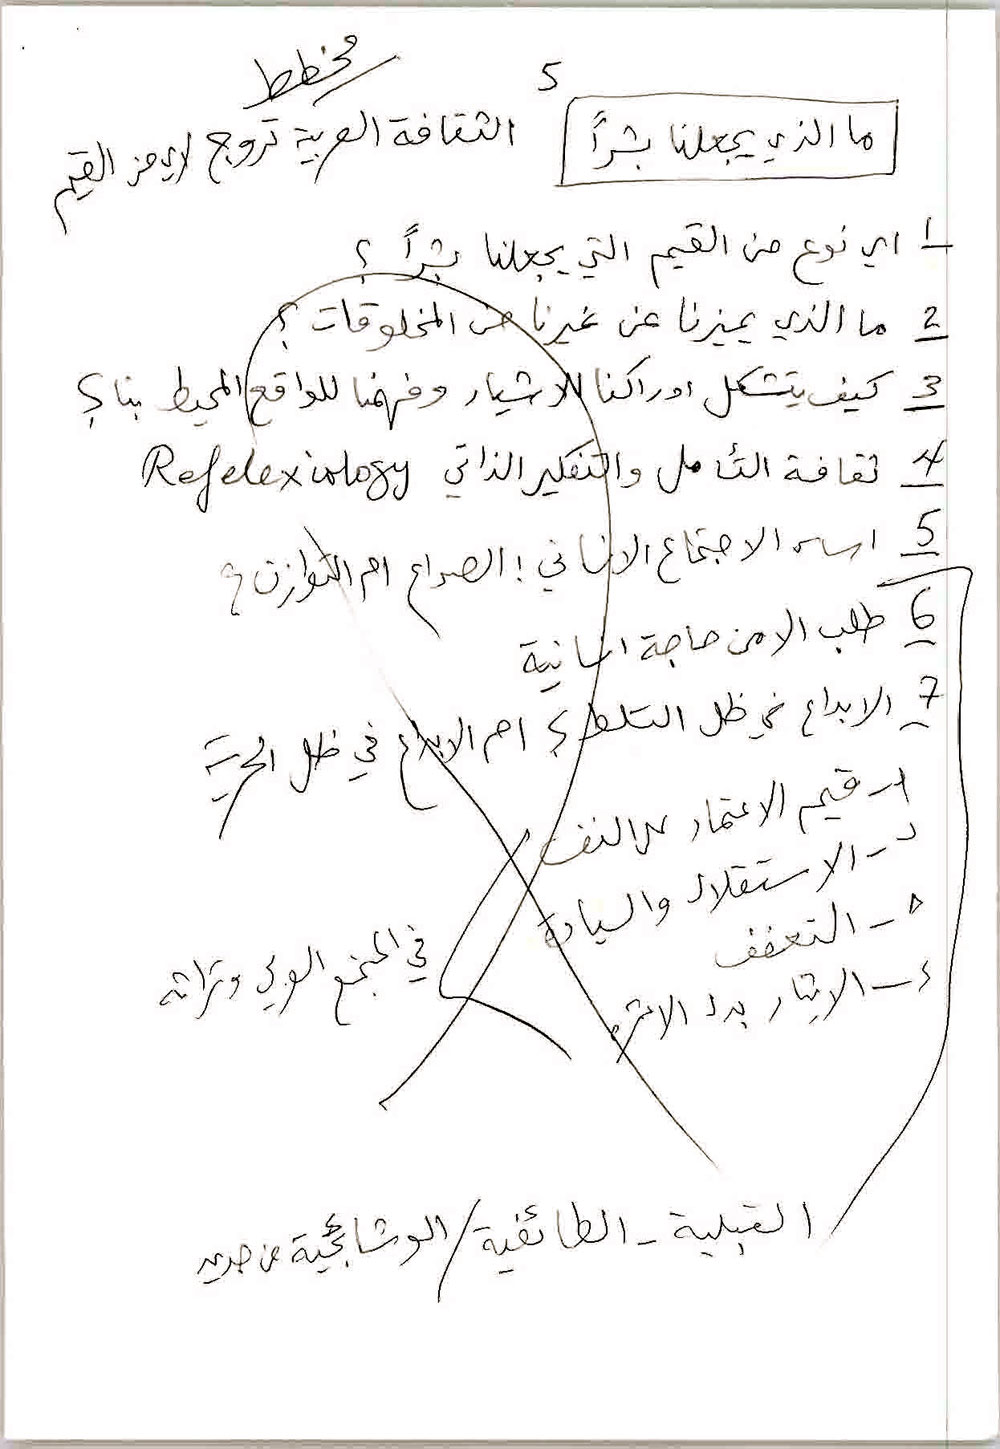 مخطط
5
ما الذي يجعلنا بشراً
الثقافة العربية تروج لاي من القيم
1 اي نوع من القيم التي يجعلنا بشراً ؟
2 ما الذي يميزنا عن غيرنا من المخلوقات ؟
3 كيف يتشكل ادراكنا للاشياء وفهمنا للواقع المحيط بنا ؟
4 ثقافة التأمل والتفكير الذاتي Refelexiology
5 اساس الاجتماع الانساني : الصراع ام التوازن ؟
6 طلب الامن حاجة انسانية
7 الابداع في ظل التسلط ؟ ام الابداع في ظل الحرية
- قيم الاعتماد على النفس
- الاستقلال والسيادة
- التعفف
- الايثار بدل الاثرة
في المجتمع العربي وتراثه
القبلية - الطائفية / الوشائجية من جديد